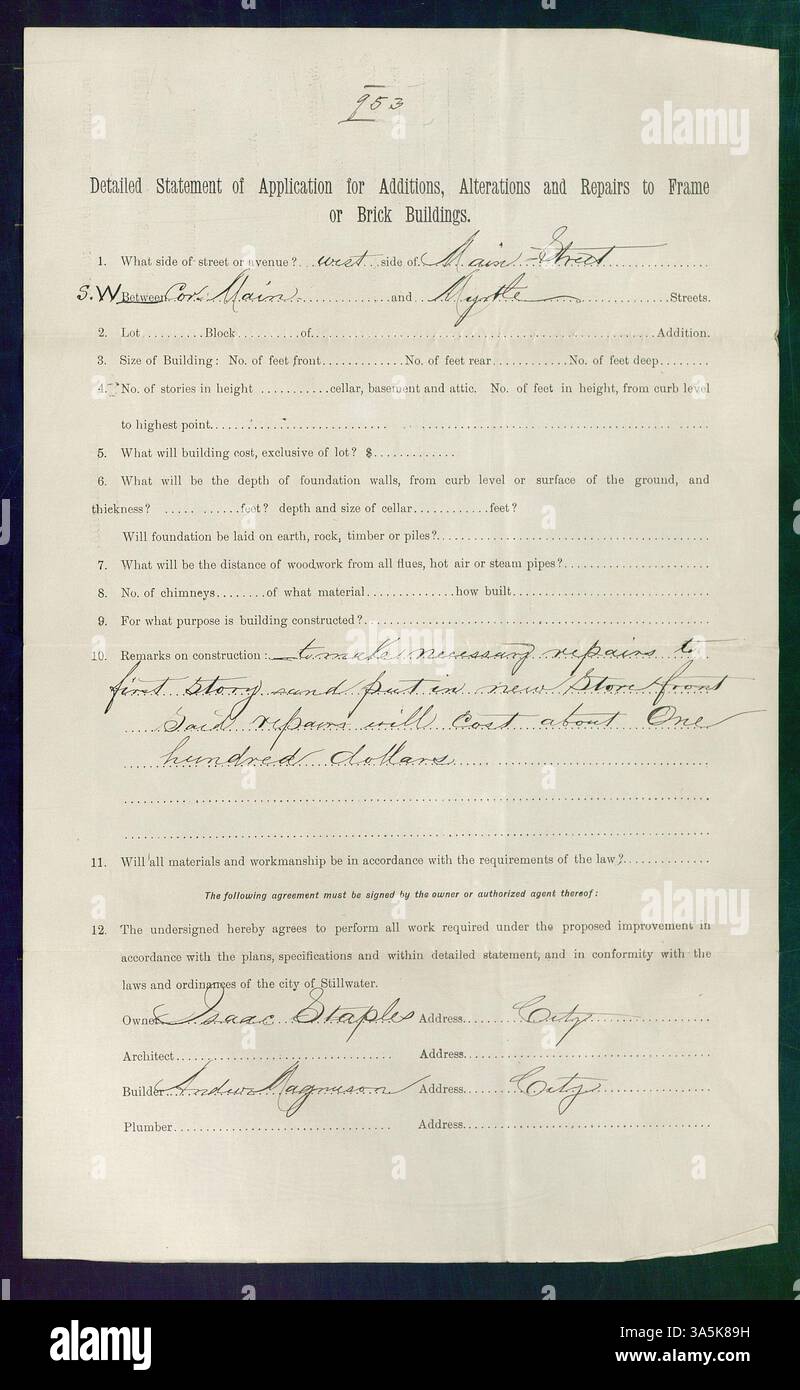 953
Detailed Statement of Application for Additions, Alterations and Repairs to Frame
or Brick Buildings.
1. What side of street or avenue? west side of Main Street
S.W Between Cor. Main and Myrtle Streets.
2. Lot Block of Addition.
3. Size of Building: No. of feet front No. of feet rear No. of feet deep
4. No. of stories in height cellar, basement and attic. No. of feet in height, from curb level
to highest point
5. What will building cost, exclusive of lot? $
6. What will be the depth of foundation walls, from curb level or surface of the ground, and
thickness? feet? depth and size of cellar feet?
Will foundation be laid on earth, rock, timber or piles?
7. What will be the distance of woodwork from all flues, hot air or steam pipes?
8. No. of chimneys of what material how built
9. For what purpose is building constructed?
10. Remarks on construction: to make necessary repairs to
first story and put in new store front
Said repairs will cost about One
hundred dollars
11. Will all materials and workmanship be in accordance with the requirements of the law?
The following agreement must be signed by the owner or authorized agent thereof:
12. The undersigned hereby agrees to perform all work required under the proposed improvement in
accordance with the plans, specifications and within detailed statement, and in conformity with the
laws and ordinances of the city of Stillwater.
Owner Isaac Staples Address City
Architect Address
Builder Andrew Magnuson Address City
Plumber Address
alamy
Image ID: 3A5K89H
www.alamy.com